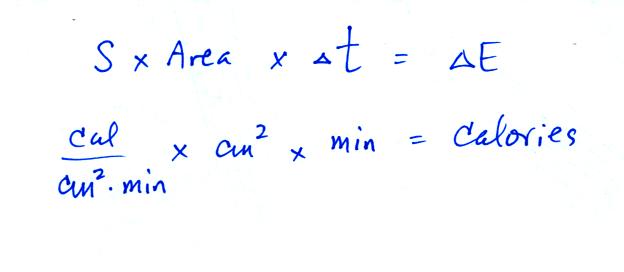 S x Area x Δt = ΔE
cal / cm². min x cm² x min = Calories